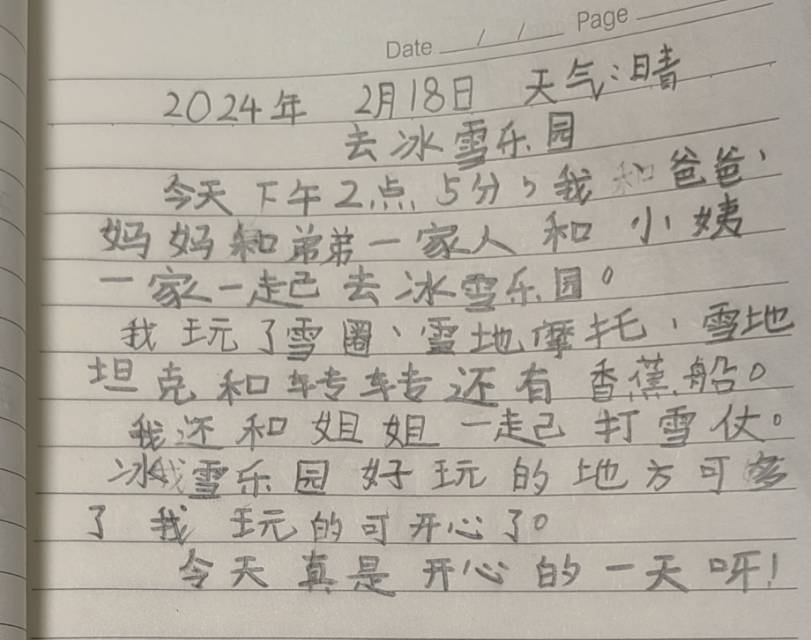 Date / / Page
2024年 2月18日 天气:晴
去冰雪乐园
今天下午2点5分,我和爸爸、
妈妈和弟弟一家人和小姨
一家一起去冰雪乐园。
我玩了雪圈、雪地摩托、雪地
坦克和转转还有香蕉船。
我还和姐姐一起打雪仗。
冰雪乐园好玩的地方可多
了我玩的可开心了。
今天真是开心的一天呀!